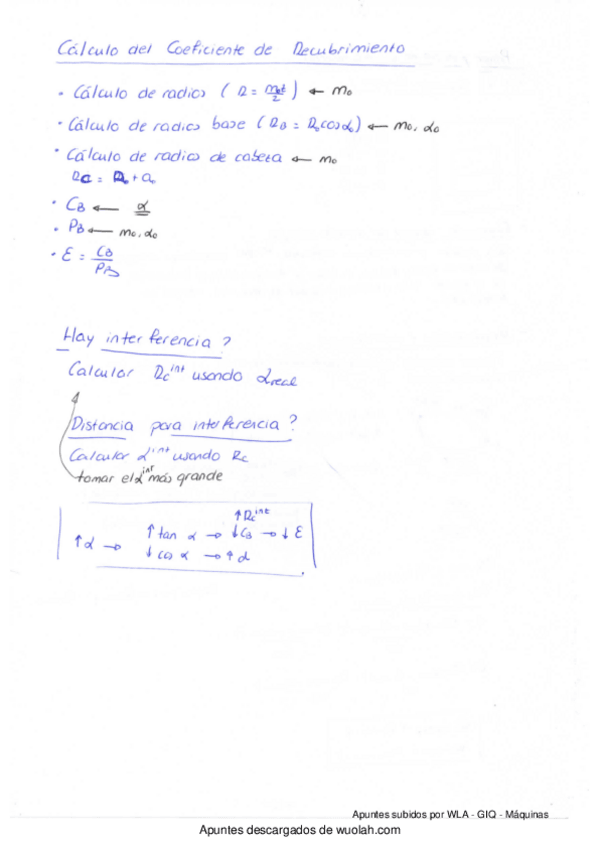 Cálculo del Coeficiente de Recubrimiento
• Cálculo de radios ( R = m₀z/2 ) ← m₀
• Cálculo de radios base ( R_B = R₀ cos α₀ ) ← m₀, α₀
• Cálculo de radios de cabeza ← m₀
R_C = R₀ + a₀
• C_B ← α
• P_B ← m₀, α₀
• ε = C_B / P_B
Hay interferencia ?
Calcular R_C^int usando α_real
Distancia para interferencia ?
Calcular α^int usando R_C
tomar el α^int más grande
↑ R_C^int
↑ α → ↑ tan α → ↓ C_B → ↓ ε
↓ cos α → ↑ d
Apuntes subidos por WLA - GIQ - Máquinas
Apuntes descargados de wuolah.com